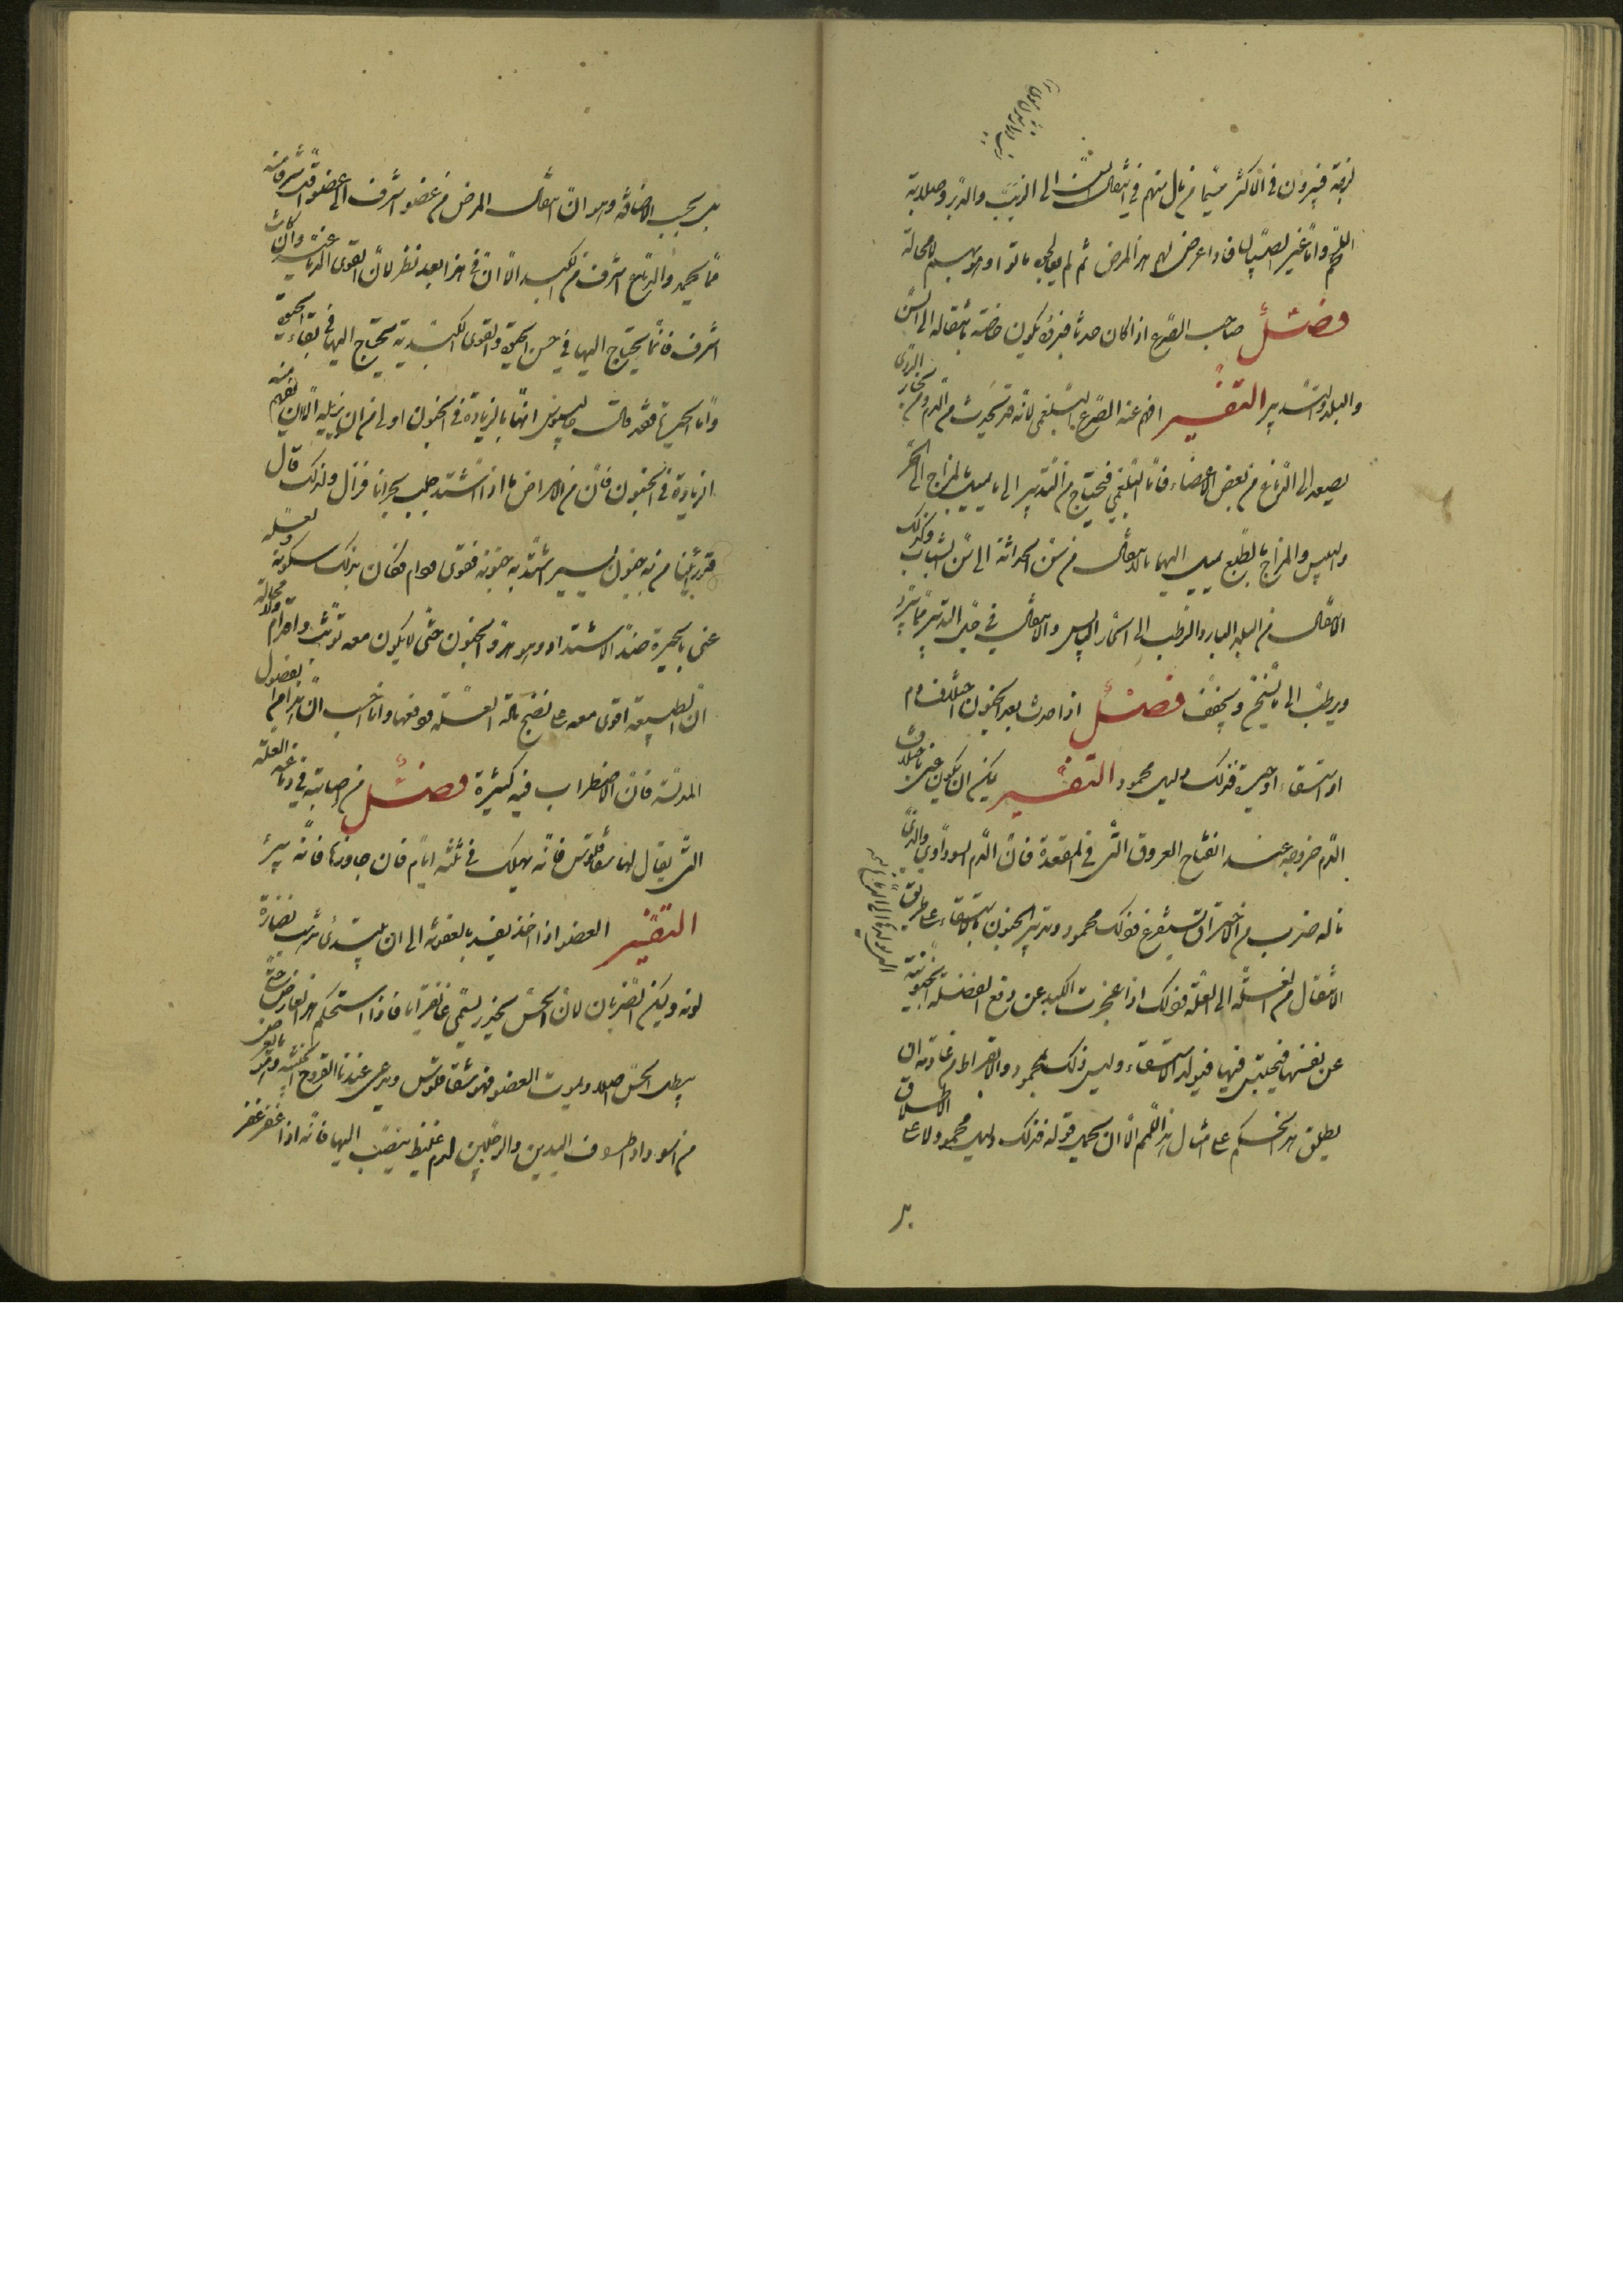 لزجة فيبرؤن فى الاكثر سيما من مال منهم فى انتقال السن الى الترتيب والتدبير وصلابة
اللحم واما غير الصبيان فاذا عرض لهم هذا المرض ثم لم يعالجوه ماتوا وهو بهم لا محالة
فصل صاحب الصرع اذا كان حدثا فبرؤه يكون خاصة بانتقاله الى السن
والبلد والتدبير التفسير افهم عنه الصرع البلغمى لانه قد يحدث من الدم ومن بخار الردى
يصعد الى الدماغ من بعض الاعضاء فاما البلغمى فيحتاج من التدبير الى ما يميل بالمزاج الى الحر
واليبس والمزاج بالطبع يميل اليهما بالانتقال من سن الحداثة الى سن الشباب وكذلك
الانتقال من البلد البارد الرطب الى الحار اليابس والانتقال فى التدبير مما يبرد
ويرطب الى ما يسخن ويجفف فصل اذا حدث بعد الجنون اختلاف دم
او استسقاء او حيرة فذلك دليل محمود التفسير يمكن ان يكون عنى باختلاف
الدم خروجه عند انفتاح العروق التى فى المقعدة فان الدم السوداوى والذى
ناله ضرب من الاحتراق يستفرغ فذلك محمود وتدبير الجنون بالاستسقاء على طريق
الانتقال من العلة الى العلة فذلك اذا عجزت الكبد عن دفع الفضلة المجنونية
عن نفسها فيحتبس فيها فيولد الاستسقاء وليس ذلك بمحمود والابقراط من عادته ان
يطلق هذا الحكم على امثال هذا اللهم الا ان يحمل قوله فذلك دليل محمود لا على الاطلاق
بل
بل بحسب الاضافة وهو ان انتقال المرض من عضو اشرف الى عضو اقل شرفا منه
مما يحمد والدماغ اشرف من الكبد الا ان فى هذا بعد نظر لان القوى الدماغية وان كانت
اشرف فانما يحتاج اليها فى حسن الحيوة والقوى الكبدية يحتاج اليها فى بقاء الحيوة
واما الحيرة فقد قال جالينوس انها بالزيادة فى الجنون اولى من ان يزيله الا ان يفهم منه
الزيادة فى الجنون فان من الامراض ما اذا اشتد جلب بحرانا فزال ولذلك قال
قد رأينا من به جنون يسير اشتد به جنونه فقوى ودام فكان بذلك سكونه ولعله
عنى بالحيرة ضد الاشتداد وهو هدو الجنون حتى لا يكون معه توثب واقدام ولا محالة
ان الطبيعة اقوى معه على نضج مادة العلة ودفعها وانا احسب ان هذا من فضول
المدلسة فان الاضطراب فيه كثيرة فصل من اصابته فى دماغه العلة
التى يقال لها سفاقلوس فانه يهلك فى ثلثة ايام فان جاوزها فانه يبرئ
التفسير العضو اذا اخذ يفسد بالعفونة الى ان يبتدئ يذهب نضارة
لونه ويمكن الضربان لان الحس يخدر يسمى غانغرانا فاذا استحكم هذا العارض حتى
يبطل الحس اصلا ويموت العضو فهو سفاقلوس ويدعى عندنا القروح الخبيثة وما يعرض
من اسوداد اطراف اليدين والرجلين لدم غليظ ينصب اليها فانه اذا عفن عفن